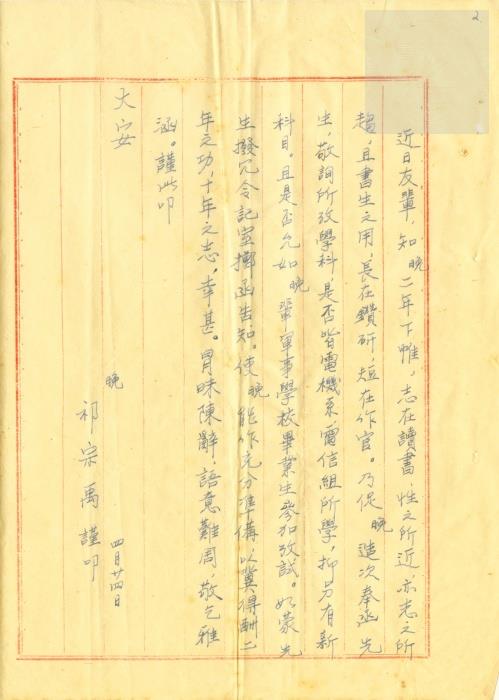 2
近日友輩,知晚二年下帷,志在讀書,性之所近,亦志之所
趨,且書生之用,長在鑽研,短在作官。乃促晚造次奉函先
生,敬詢所攷學科,是否皆電機系電信組所學,抑另有新
科目。且是否允如晚輩軍事學校畢業生參加攷試。如蒙先
生撥冗令記室擲函告知。使晚能作充分準備以冀得酬二
年之功,十年之志。幸甚。冒昧陳辭,語意難周,敬乞雅
涵。謹此叩
大安
晚 祁宗禹謹叩
四月廿四日